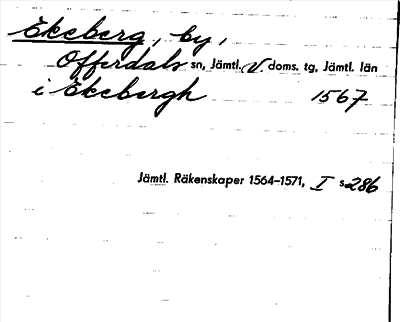 Ekeberg, by,
Offerdals sn, Jämtl. V. doms. tg, Jämtl. län
i Ekebergh 1567
Jämtl. Räkenskaper 1564-1571, I s 286